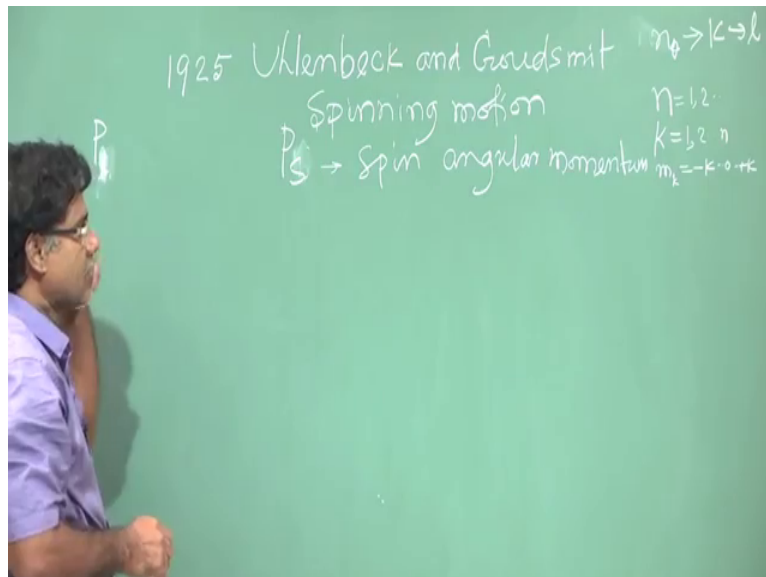 1925 Uhlembeck and Goudsmit
Spinning motion
P
P_S → spin angular momentum
n_ϕ → K → l
n = 1, 2 ..
K = 1, 2 n
m_k = -K .. 0 .. +K